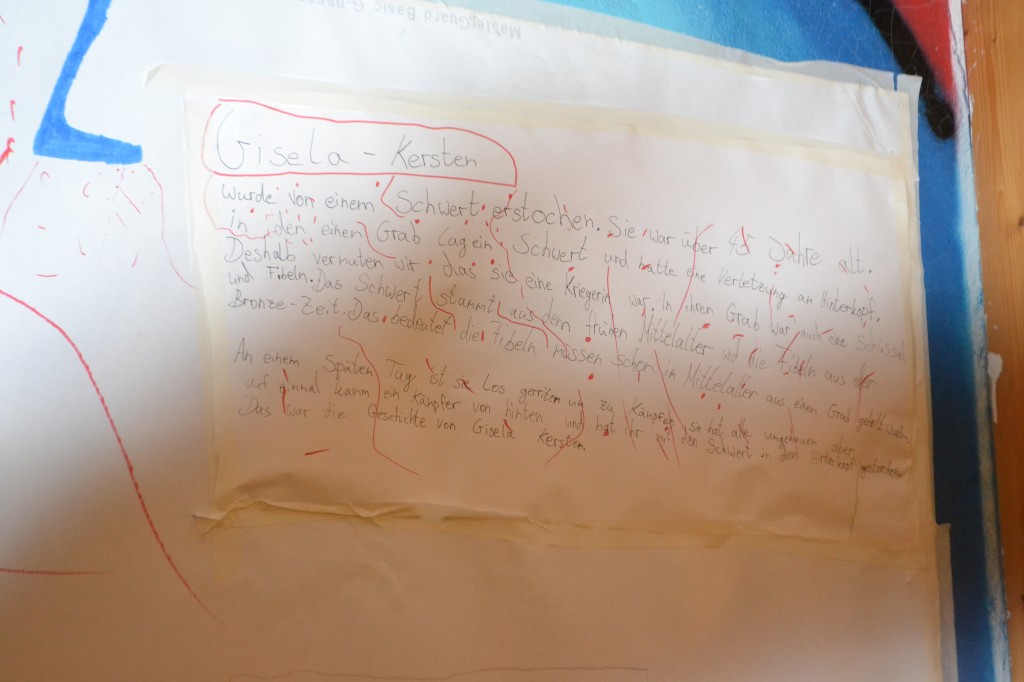 MasterGuard Basic
Gisela - Kersten
wurde von einem Schwert erstochen. Sie war über 45 Jahre alt.
in den einen Grab Lag ein Schwert und hatte eine Verletzung am Hinterkopf.
Deshalb vermuten wir das sie eine Kriegerin war. In ihren Grab war auch eine Schüssel
und Fibeln. Das Schwert stammt aus dem frühen Mittelalter und die Fibeln aus der
Bronze-Zeit. Das bedeutet die Fibeln müssen schon im Mittelalter aus einen Grab
An einem Späten Tag ist sie Los gerriten um zu Kämpfen sie hat alle umgehauen aber
auf einmal kamm ein Kämpfer von hinten und hat ihr mit den Schwert in den Hinterkopf gestochen
Das war die Geschichte von Gisela Kersten.